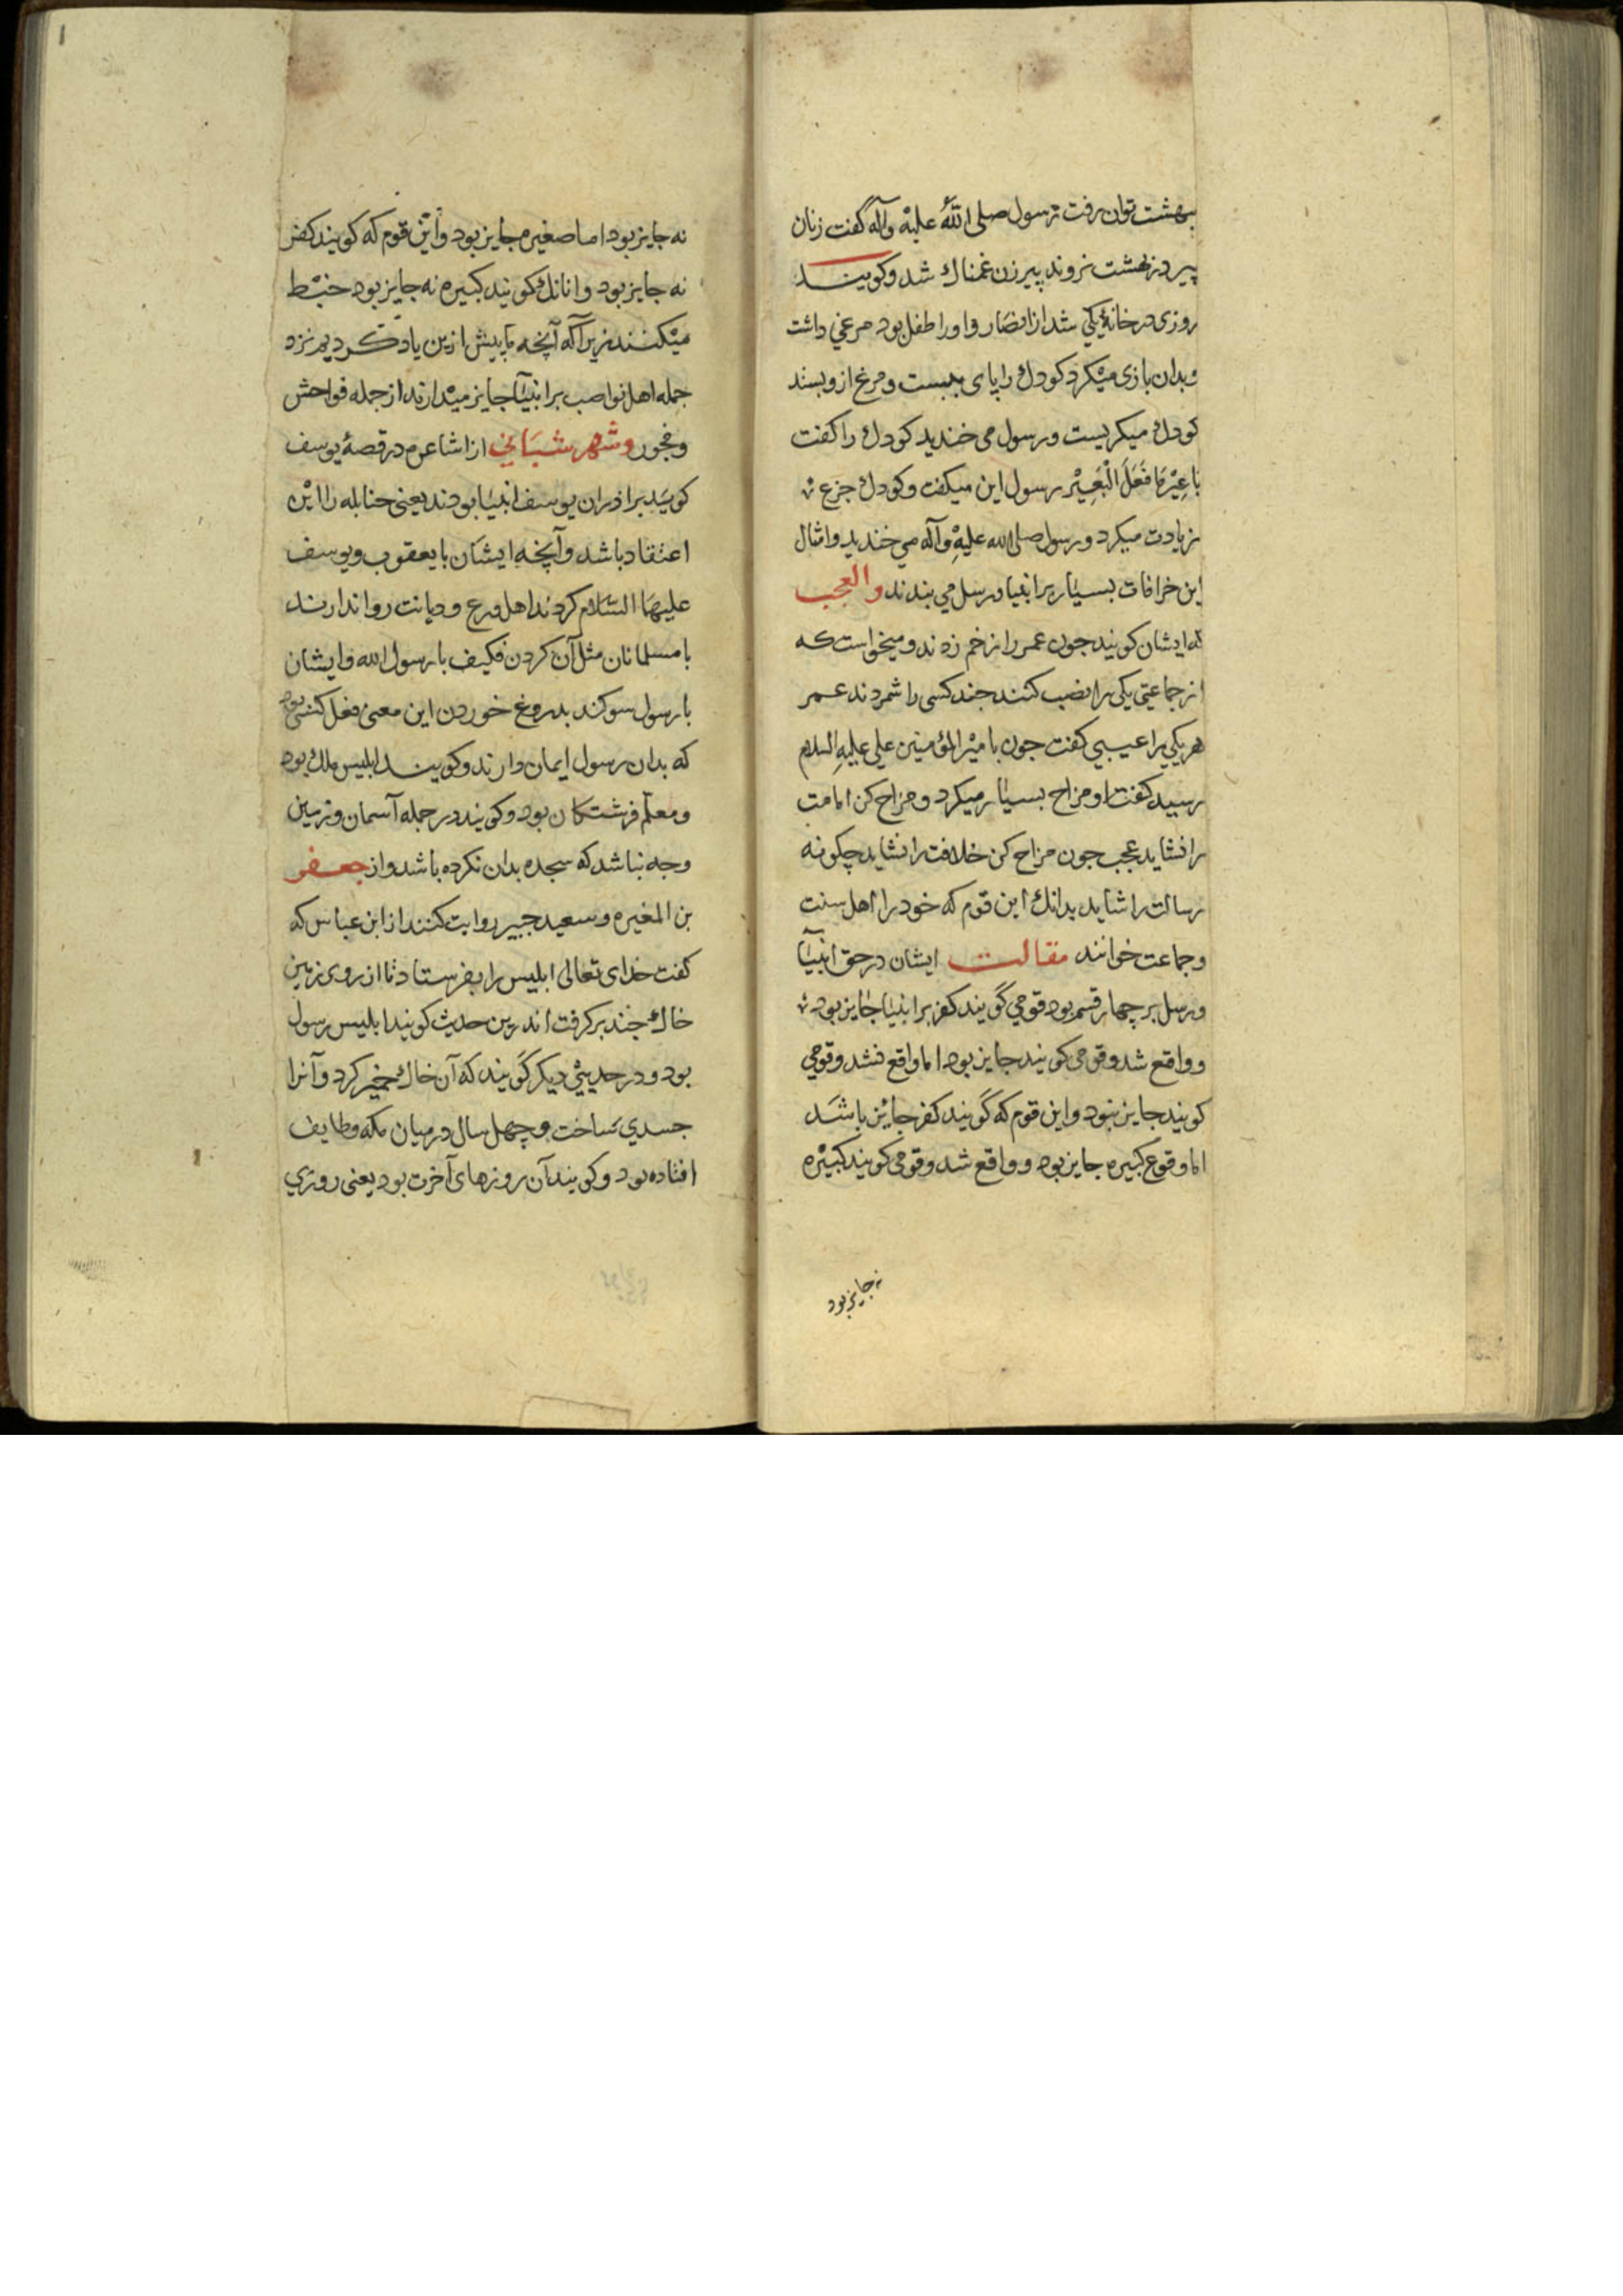 بهشت توان رفت رسول صلی الله علیه وآله گفت زنان
پیر در بهشت نروند پیرزن غمناك شد وکویند
روزی در خانهٔ یکی شد از انصار واورا طفل بود مرغی داشت
وبدان بازی میکرد کودك را پای ببست ومرغ ازو بستد
کودك میکریست ورسول می خندید کودك را کفت
با عیر ما فعل البعیر رسول این میکفت وکودك جزع
زیادت میکرد ورسول صلی الله علیه وآله می خندید وامثال
این خرافات بسیار بر انبیا ورسل می بندند والعجب
که ایشان کویند جون عمر را زخم زدند ومیخواست که
از جماعتی یکی را نصب کنند جند کسی را شمردند عمر
هر یکی را عیبی کفت جون با میر المؤمنین علی علیه السلام
رسید کفت او مزاح بسیار میکرد ومزاح کن امامت
را نشاید عجب جون مزاح کن خلافت را نشاید چکونه
رسالت را شاید بدانك این قوم که خود را اهل سنت
وجماعت خوانند مقالت ایشان در حق انبیآ
ورسل بر چهار قسم بود قومی گویند کفر بر انبیا جایز بود
وواقع شد وقومی کویند جایز بود اما واقع نشد وقومی
کویند جایز نبود واین قوم که گویند کفر جایز باشد
اما وقوع کبیره جایز بود وواقع شد وقومی کویند کبیره
نه جایز بود
نه جایز بود اما صغیره جایز بود واین قوم که کویند کفر
نه جایز بود وانانك کویند کبیره نه جایز بود خبط
میکنند زیرآکه آنچه ما پیش ازین یاد کردیم نزد
جمله اهل نواصب بر انبیآ جایز میدارند از جمله فواحش
وفجور وشهر شبیانی از اشاعره در قصهٔ یوسف
کوید برادران یوسف انبیا بودند یعنی حنابله را این
اعتقاد باشد وآنچه ایشان با یعقوب ویوسف
علیهما السلام کردند اهل ورع ودیانت روا ندارند
با مسلمانان مثل آن کردن فکیف با رسول الله وایشان
با رسول سوکند بدروغ خوردن این معنی فعل کسی بود
که بدان رسول ایمان دارند وکویند ابلیس ملك بود
ومعلم فرشتکان بود وکویند در جمله آسمان وزمین
وجه نباشد که سجده بدان نکرده باشد واز جعفر
بن المغیره وسعید جبیر روایت کنند از ابن عباس که
کفت خدای تعالی ابلیس را بفرستاد تا از روی زمین
خاك جند برکرفت اندرین حدیث کویند ابلیس رسول
بود ودر حدیثی دیکر گویند که آن خاك خمیر کرد وآنرا
جسدی ساخت وچهل سال در میان مکه وطایف
افتاده بود وکویند آن روزهای آخرت بود یعنی روزی